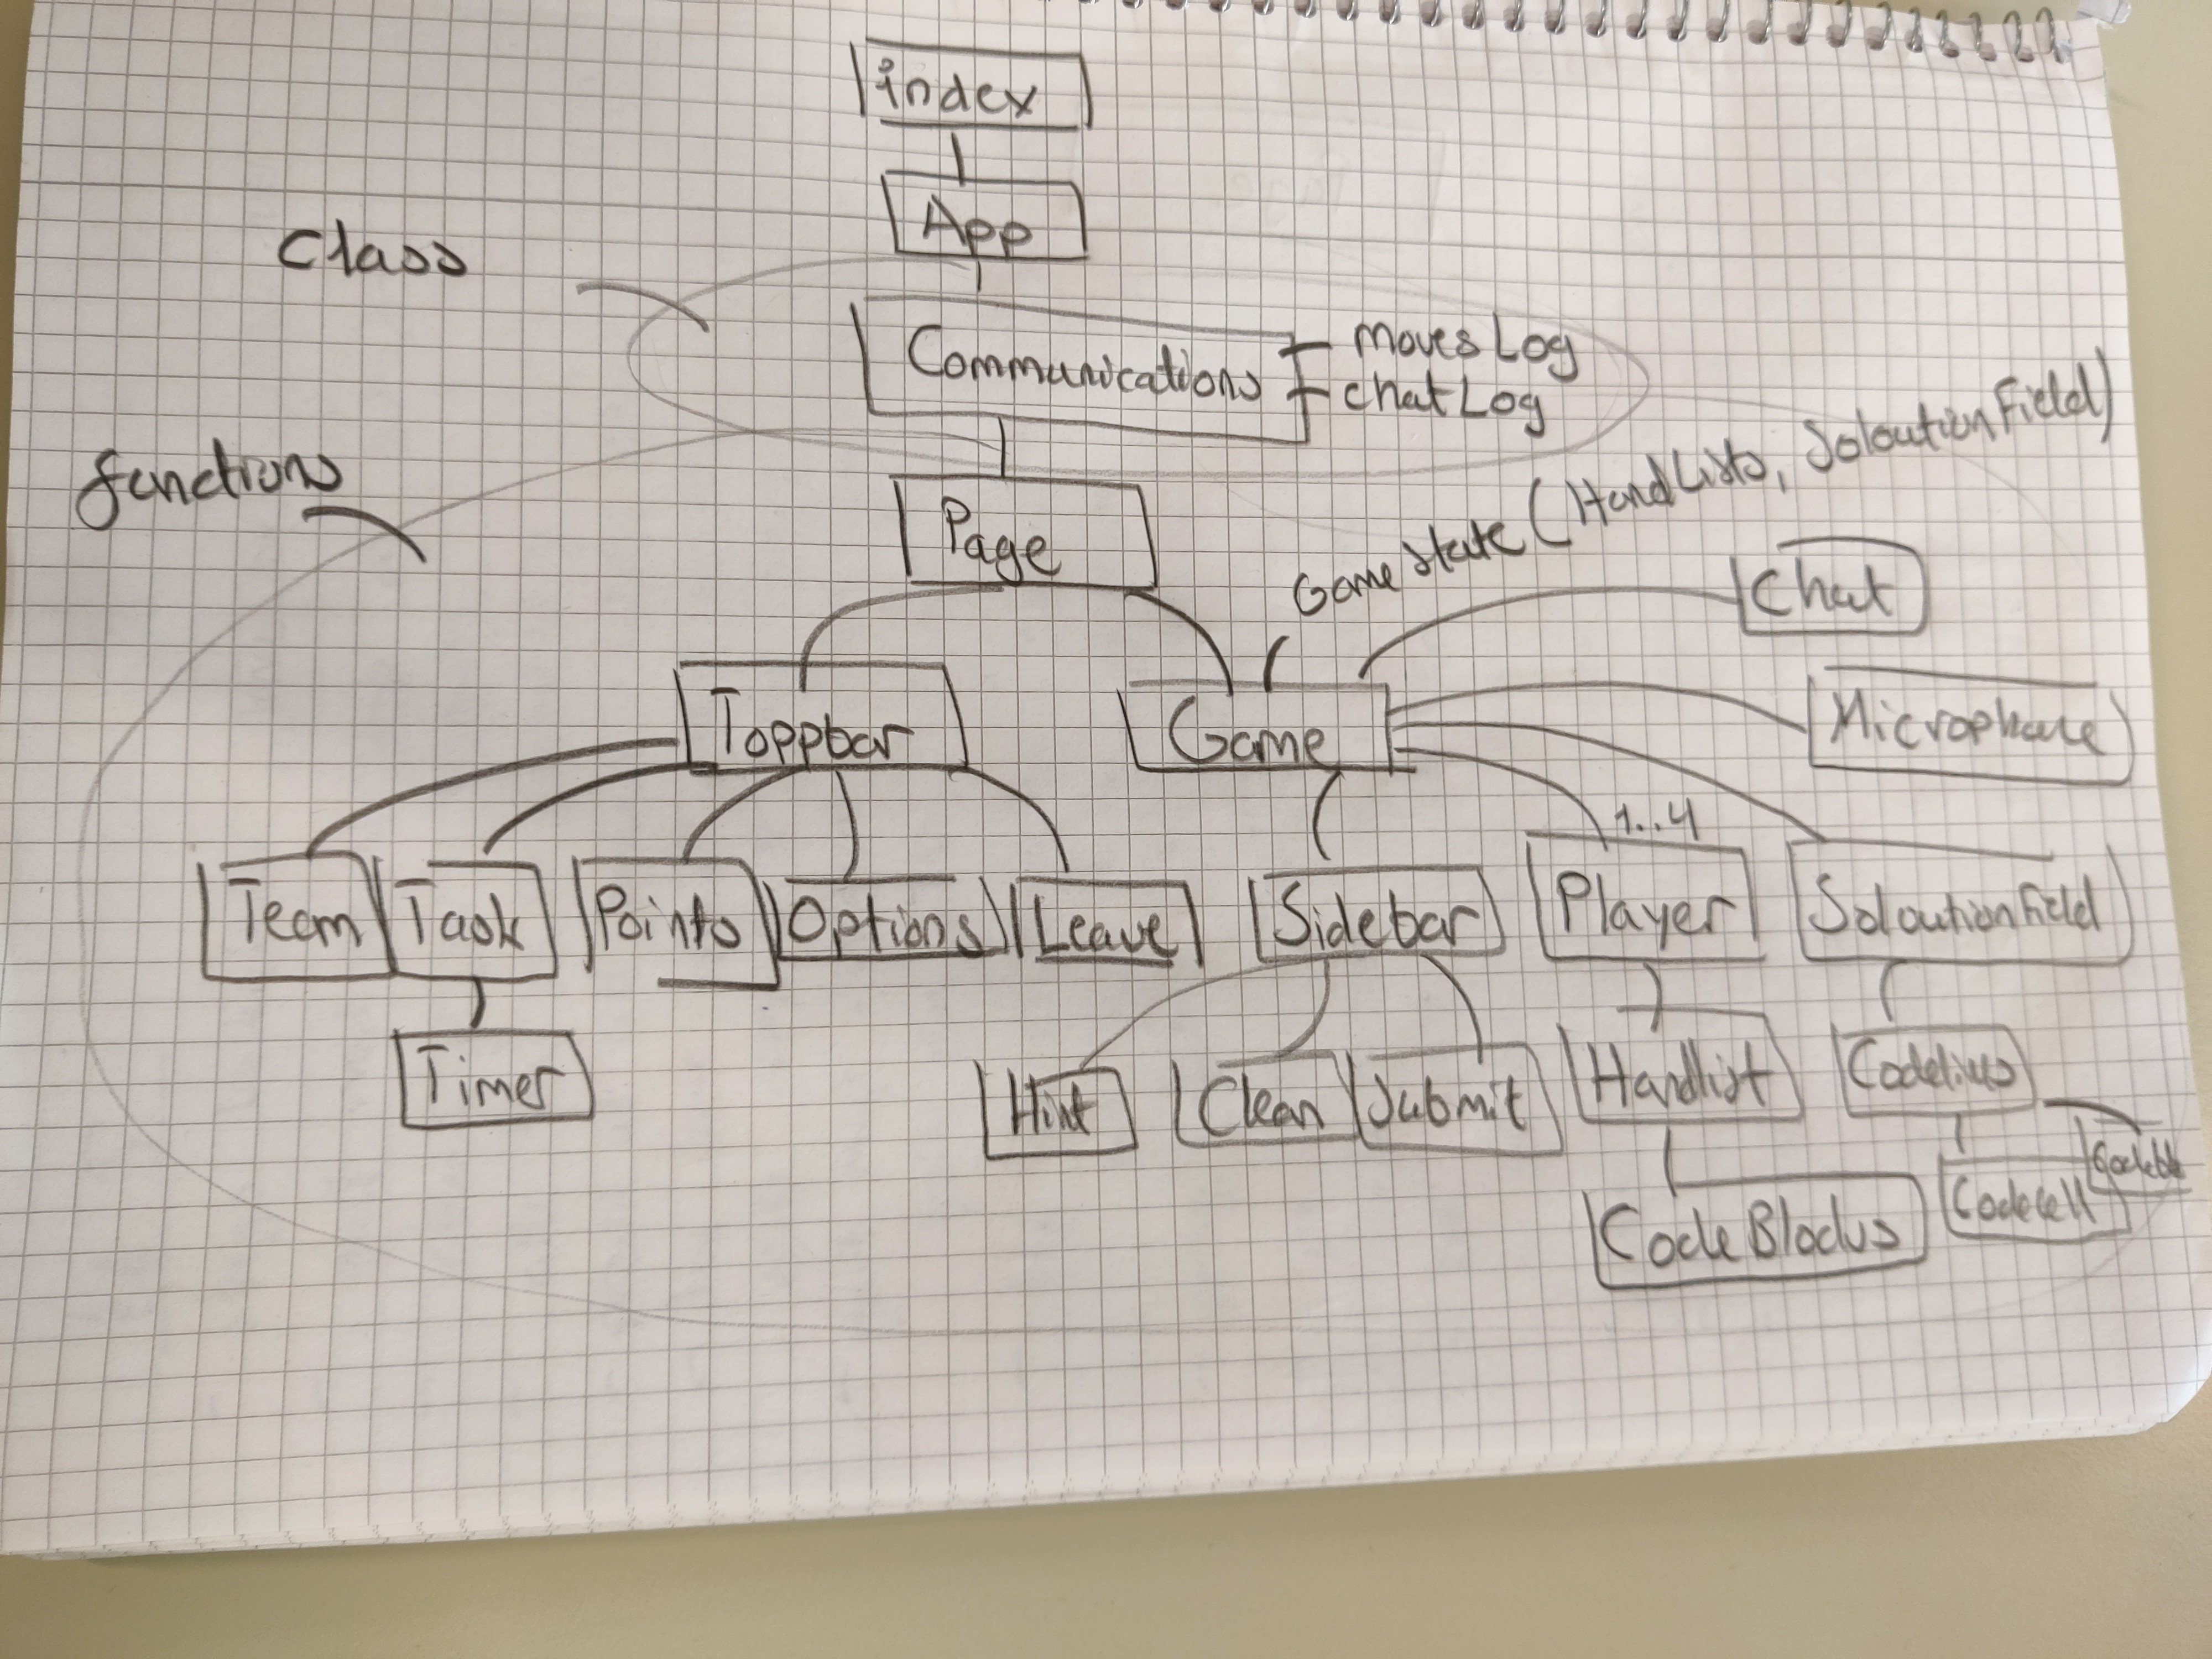 index
App
Class
Communications
movesLog
chatLog
functions
Page
Game state (HandLists, SoloutionField)
Chat
Toppbar
Game
Microphone
1..4
Team
Task
Points
Options
Leave
Sidebar
Player
SoloutionField
Timer
Hint
Clean
Submit
Handlist
Codelines
CodeBlocks
Codecell